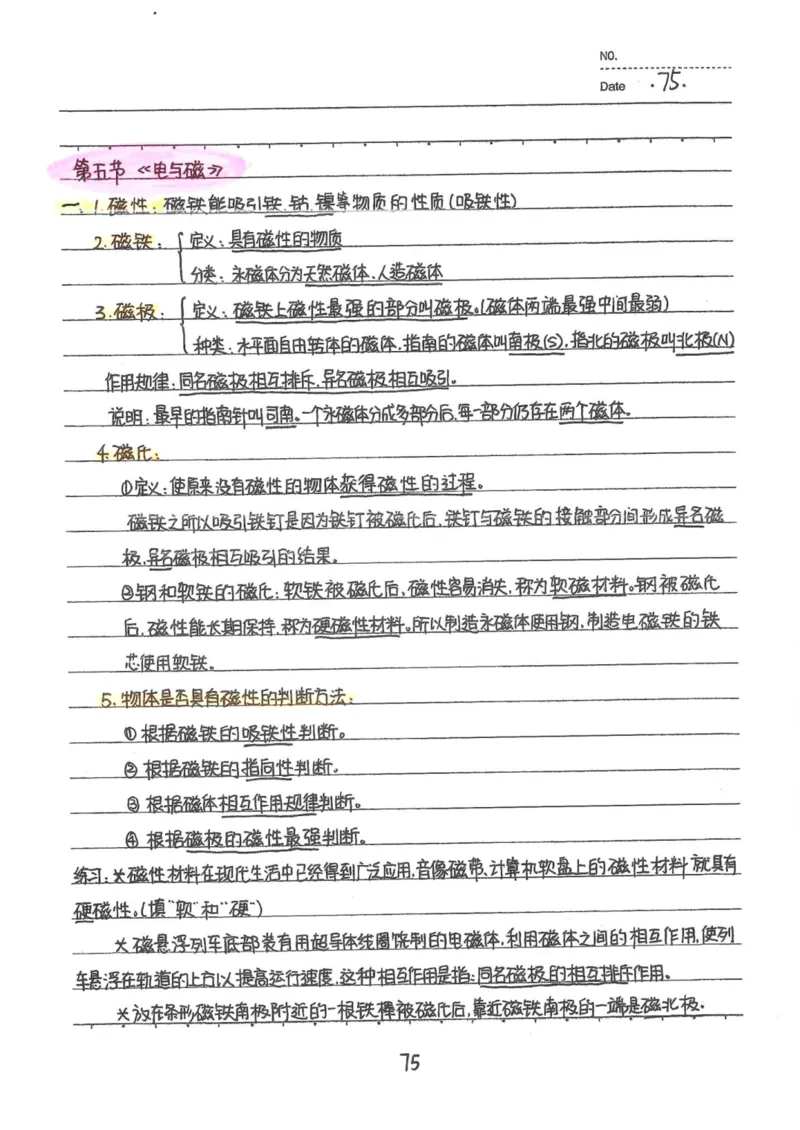 NO.
Date .75.
第五节《电与磁》
一、1.磁性：磁铁能吸引铁、钴、镍等物质的性质(吸铁性)
2.磁铁：定义：具有磁性的物质
分类：永磁体分为天然磁体、人造磁体
3.磁极：定义：磁铁上磁性最强的部分叫磁极。(磁体两端最强中间最弱)
种类：水平面自由转体的磁体，指南的磁体叫南极(S)，指北的磁极叫北极(N)
作用规律：同名磁极相互排斥，异名磁极相互吸引。
说明：最早的指南针叫司南。一个永磁体分成多部分后，每一部分仍存在两个磁体。
4.磁化：
①定义：使原来没有磁性的物体获得磁性的过程。
磁铁之所以吸引铁钉是因为铁钉被磁化后，铁钉与磁铁的接触部分间形成异名磁
极，异名磁极相互吸引的结果。
②钢和软铁的磁化：软铁被磁化后，磁性容易消失，称为软磁材料。钢被磁化
后，磁性能长期保持，称为硬磁性材料。所以制造永磁体使用钢，制造电磁铁的铁
芯使用软铁。
5.物体是否具有磁性的判断方法：
①根据磁铁的吸铁性判断。
②根据磁铁的指向性判断。
③根据磁体相互作用规律判断。
④根据磁极的磁性最强判断。
练习：*磁性材料在现代生活中已经得到广泛应用，音像磁带、计算机软盘上的磁性材料就具有
硬磁性。(填"软"和"硬")
*磁悬浮列车底部装有用超导体线圈饶制的电磁体，利用磁体之间的相互作用，使列
车悬浮在轨道的上方以提高运行速度，这种相互作用是指：同名磁极的相互排斥作用。
*放在条形磁铁南极附近的一根铁棒被磁化后，靠近磁铁南极的一端是磁北极.
75